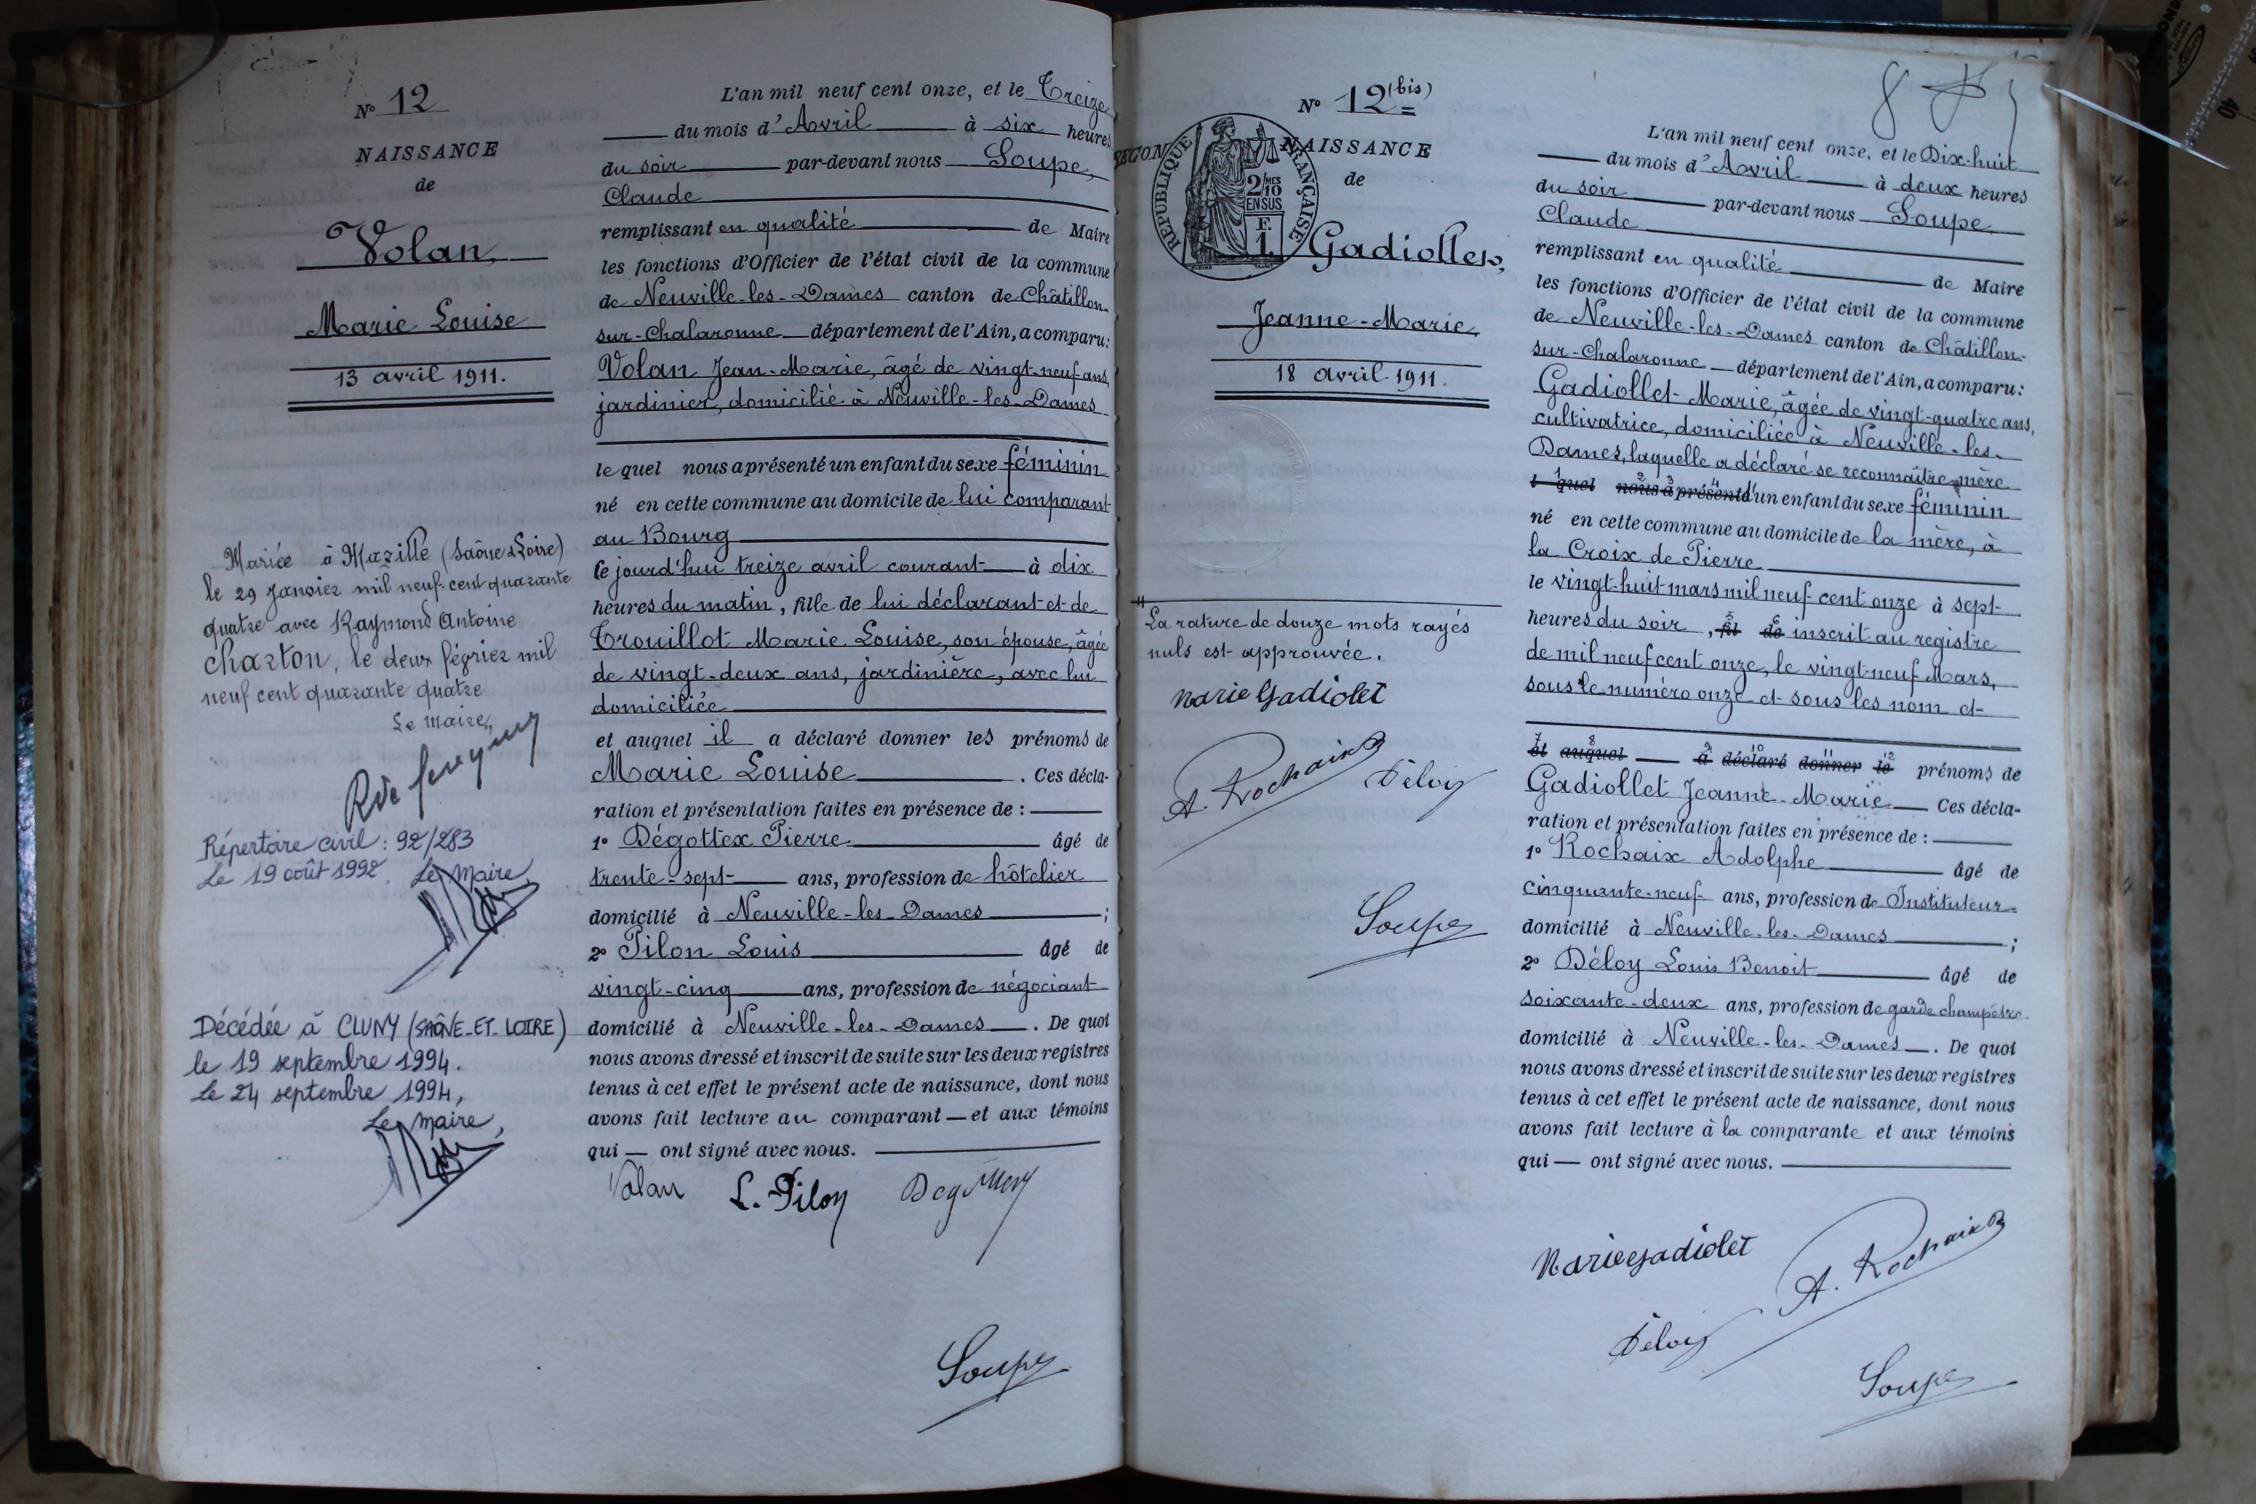 N° 12
NAISSANCE
de
Volan,
Marie Louise
13 avril 1911.
Mariée à Mazille (Saône & Loire)
le 29 Janvier mil neuf-cent quarante
quatre avec Raymond Antoine
Charton, le deux février mil
neuf cent quarante quatre
Le Maire,
Répertoire civil : 92/283
Le 19 août 1992. Le Maire
Décédée à CLUNY (SAÔNE-ET-LOIRE)
le 19 septembre 1994.
Le 24 septembre 1994,
Le Maire,
L'an mil neuf cent onze, et le Treize
du mois d'Avril à six heures
du soir par-devant nous Soupe,
Claude
remplissant en qualité de Maire
les fonctions d'Officier de l'état civil de la commune
de Neuville-les-Dames canton de Châtillon-
sur-Chalaronne département de l'Ain, a comparu:
Volan Jean-Marie, âgé de vingt-neuf ans,
jardinier, domicilié à Neuville-les-Dames
le quel nous a présenté un enfant du sexe féminin
né en cette commune au domicile de lui comparant
au Bourg
ce jourd'hui treize avril courant à dix
heures du matin, fille de lui déclarant et de
Trouillot Marie Louise, son épouse, âgée
de vingt-deux ans, jardinière, avec lui
domiciliée
et auquel il a déclaré donner les prénoms de
Marie Louise. Ces décla-
ration et présentation faites en présence de :
1° Dégottex Pierre âgé de
trente-sept ans, profession de hôtelier
domicilié à Neuville-les-Dames ;
2° Pilon Louis âgé de
vingt-cinq ans, profession de négociant
domicilié à Neuville-les-Dames. De quoi
nous avons dressé et inscrit de suite sur les deux registres
tenus à cet effet le présent acte de naissance, dont nous
avons fait lecture au comparant et aux témoins
qui — ont signé avec nous.
Volan L. Pilon
Soupe
N° 12 (bis)
NAISSANCE
de
RÉPUBLIQUE FRANÇAISE
2/MES
10
EN SUS
F.
1.
Gadiollet,
Jeanne-Marie,
18 avril 1911.
La rature de douze mots rayés
nuls est approuvée.
Marie Gadiolet
A. Rochaix Déloy
Soupe
L'an mil neuf cent onze, et le Dix-huit
du mois d'Avril à deux heures
du soir par-devant nous Soupe
Claude
remplissant en qualité de Maire
les fonctions d'Officier de l'état civil de la commune
de Neuville-les-Dames canton de Châtillon-
sur-Chalaronne département de l'Ain, a comparu:
Gadiollet Marie, âgée de vingt-quatre ans,
cultivatrice, domiciliée à Neuville-les-
Dames, laquelle a déclaré se reconnaître mère
l quel nous a présenté d'un enfant du sexe féminin
né en cette commune au domicile de la mère, à
la Croix de Pierre
le vingt-huit mars mil neuf cent onze à sept
heures du soir, fil de inscrit au registre
de mil neuf cent onze, le vingt-neuf Mars,
sous le numéro onze et sous les nom et
et auquel a déclaré donner le prénoms de
Gadiollet Jeanne-Marie Ces décla-
ration et présentation faites en présence de :
1° Rochaix Adolphe âgé de
cinquante-neuf ans, profession de Instituteur
domicilié à Neuville-les-Dames ;
2° Déloy Louis Benoit âgé de
soixante-deux ans, profession de garde champêtre
domicilié à Neuville-les-Dames. De quoi
nous avons dressé et inscrit de suite sur les deux registres
tenus à cet effet le présent acte de naissance, dont nous
avons fait lecture à la comparante et aux témoins
qui — ont signé avec nous.
Marie Gadiolet
A. Rochaix
Déloy
Soupe